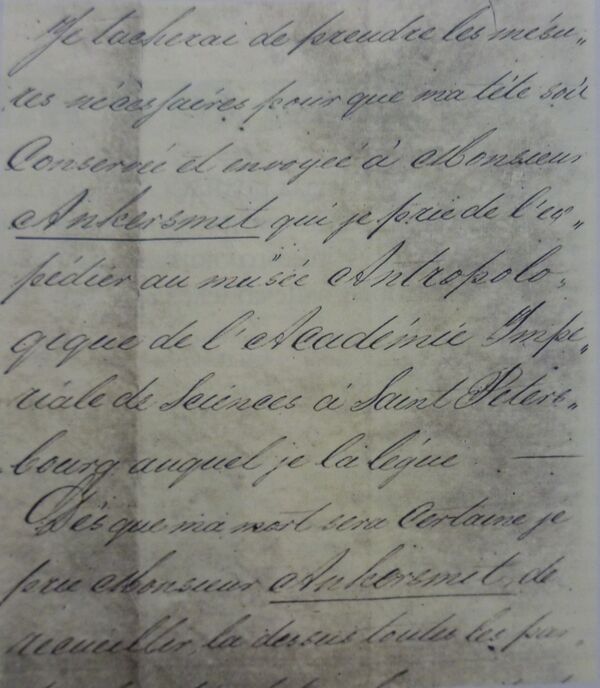 Je tacherai de prendre les mésu„
res nécèssaires pour que ma tête soit
Conservée et envoyée à Monsieur
Ankersmit qui je prie de l'ex„
pédier au musée Antropolo„
gique de l'Académie Impe„
riale de Sciences à Saint Peters„
bourg auquel je la légue —
Dès que ma mort sera certaine je
prie Monsieur Ankersmit, de
recueiller la dessus toutes les par„